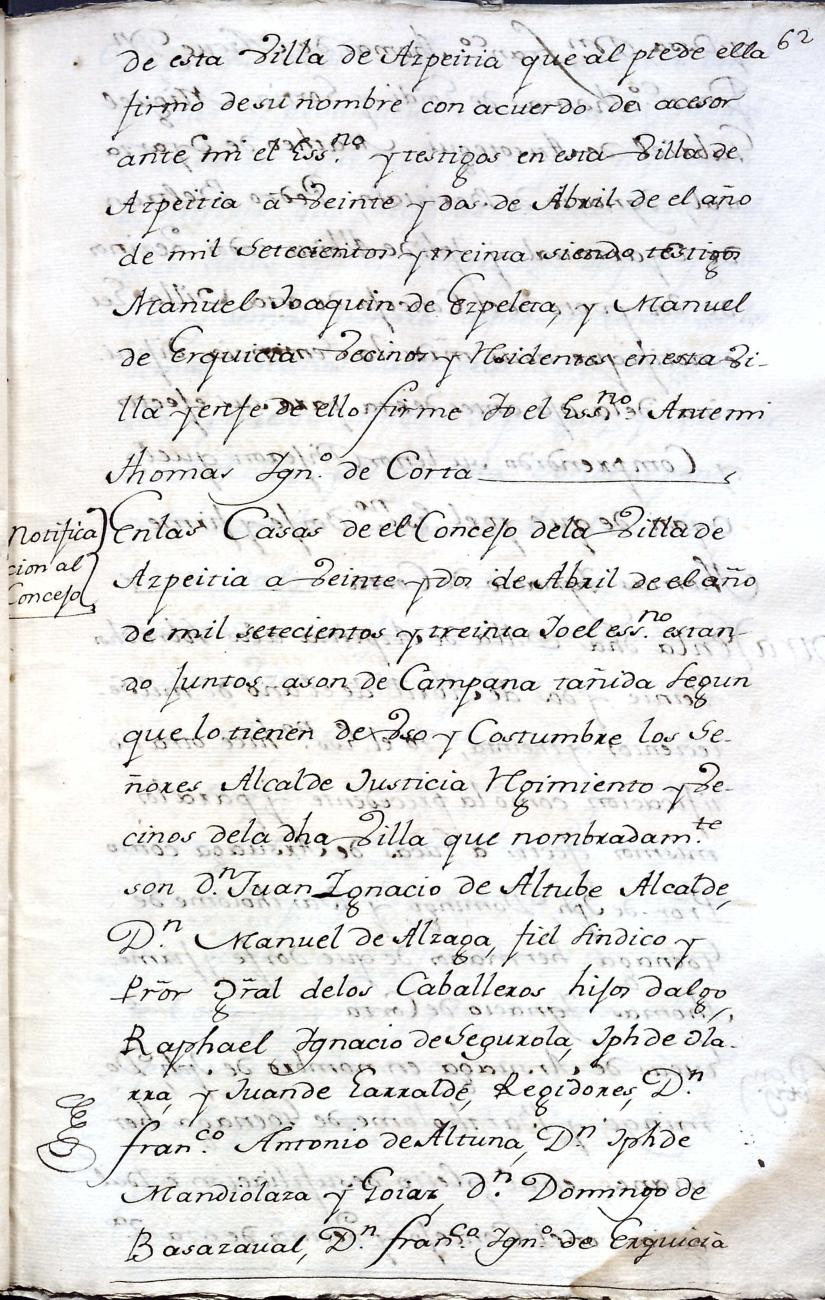 62
de esta Villa de Azpeitia que al piede ella
firmo desu nombre con acuerdo de acesor
ante mi el Ess.no y testigos en esta Villa de
Azpeitia à Veinte y dos de Abril de el año
de mil Setecientos y treinta siendo testigos
Manuel Joaquin de Ezpeleta, y Manuel
de Erquicia Vecinos y Residentes en esta Vi-
lla y enfe de ello firme Yo el Ess.no Antemi
Thomas Ign.o de Corta
Notifica
cion al
Concejo
Enlas Casas de el Concejo dela Villa de
Azpeitia a Veinte y dos de Abril de el año
de mil setecientos y treinta Yo el ess.no estan-
do Juntos ason de Campana tañida Segun
que lo tienen de Vso y Costumbre los Se-
ñores Alcalde Justicia Regimiento y Ve-
cinos dela dha Villa que nombradam.te
son d.n Juan Ignacio de Altube Alcalde,
D.n Manuel de Alzaga, fiel sindico y
Prõr grãl delos Caballeros hijos dalgo,
Raphael Ignacio de Segurola, Jph de Ola-
rra, y Juan de Larralde, Regidores, D.n
fran.co Antonio de Altuna, D.n Jph de
Mandiolaza y Goiaz, d.n Domingo de
Basazaual, D.n fran.co Ign.o de Erquicia